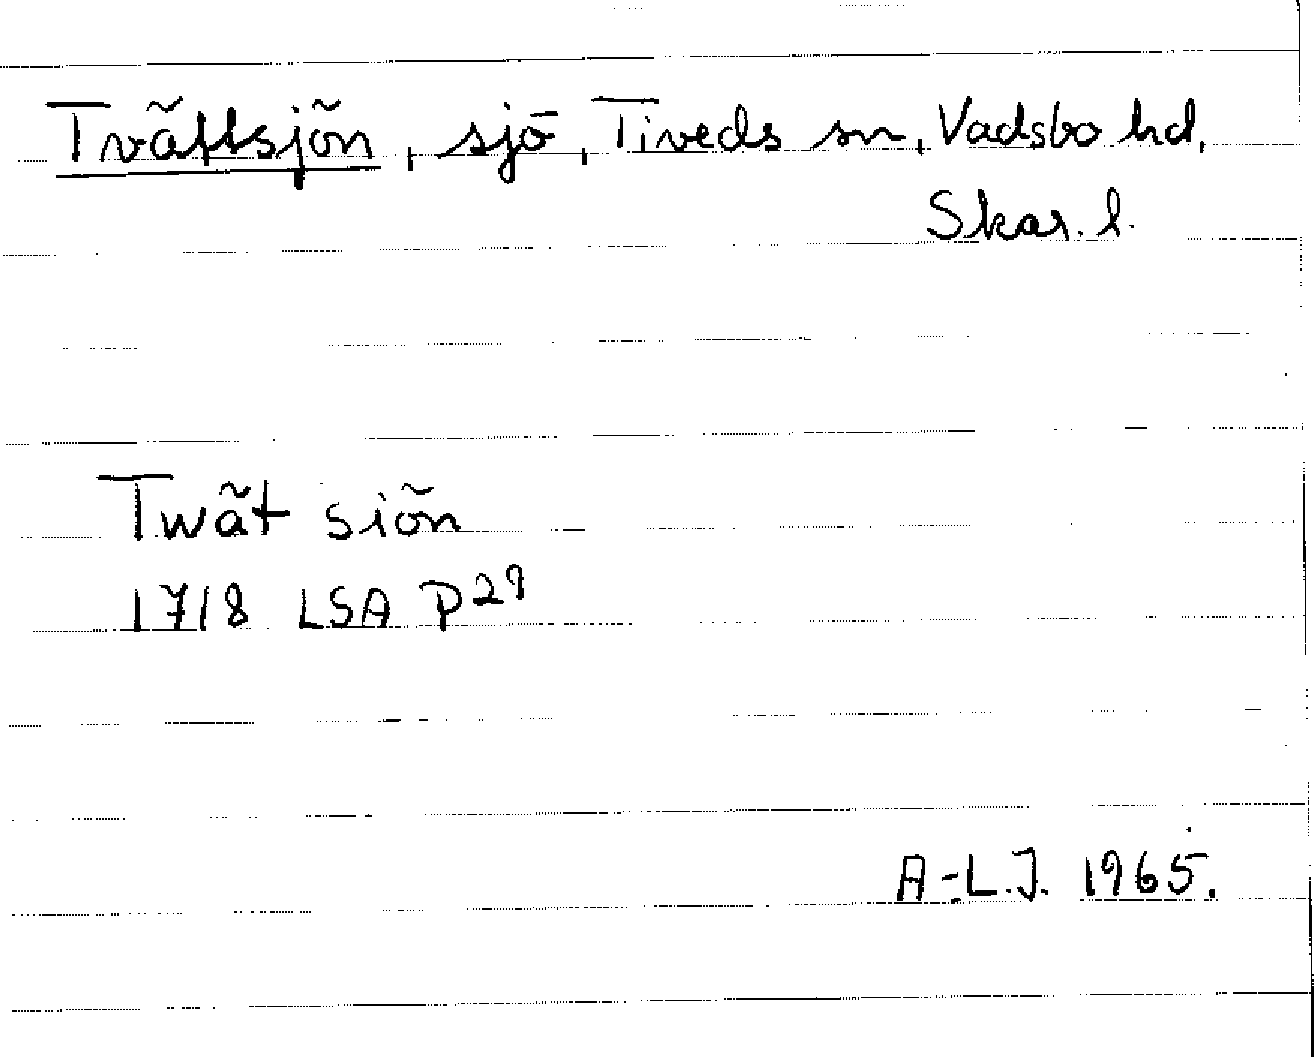 Tvättsjön, sjö, Tiveds sn, Vadsbo hd,
Skar. l.
Twät siön
1718 LSA P29
A-L.J. 1965.